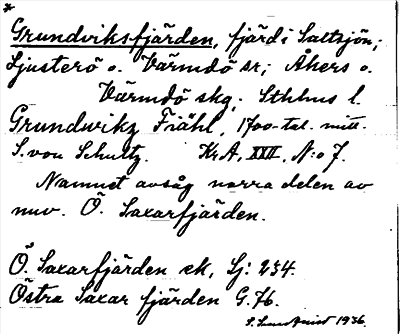 *
Grundviksfjärden, fjärd i Saltsjön,
Ljusterö o. Värmdö sr; Åkers o.
Värmdö skg. Sthlms l.
Grundwikz Fiähl, 1700-tal. mitt.
S. von Schultz. Kr.A. XXII, N:o 7.
Namnet avsåg norra delen av
nuv. Ö. Saxarfjärden.
Ö. Saxarfjärden ek, Lj: 234.
Östra Saxar fjärden G. 76.
1936.